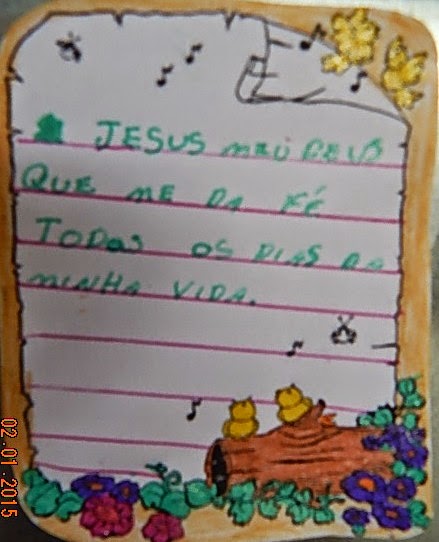 JESUS MEU DEUS
QUE ME DA FÉ
TODOS OS DIAS DA
MINHA VIDA.
02.01.2015